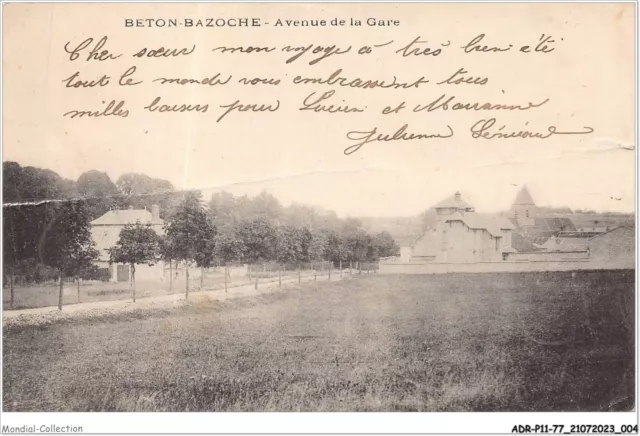 BETON-BAZOCHE - Avenue de la Gare
Cher sœur mon voyage à très bien été
tout le monde vous embrassent tous
milles baisers pour Lucien et Marranne
Julienne
Mondial-Collection
ADR-P11-77_21072023_004